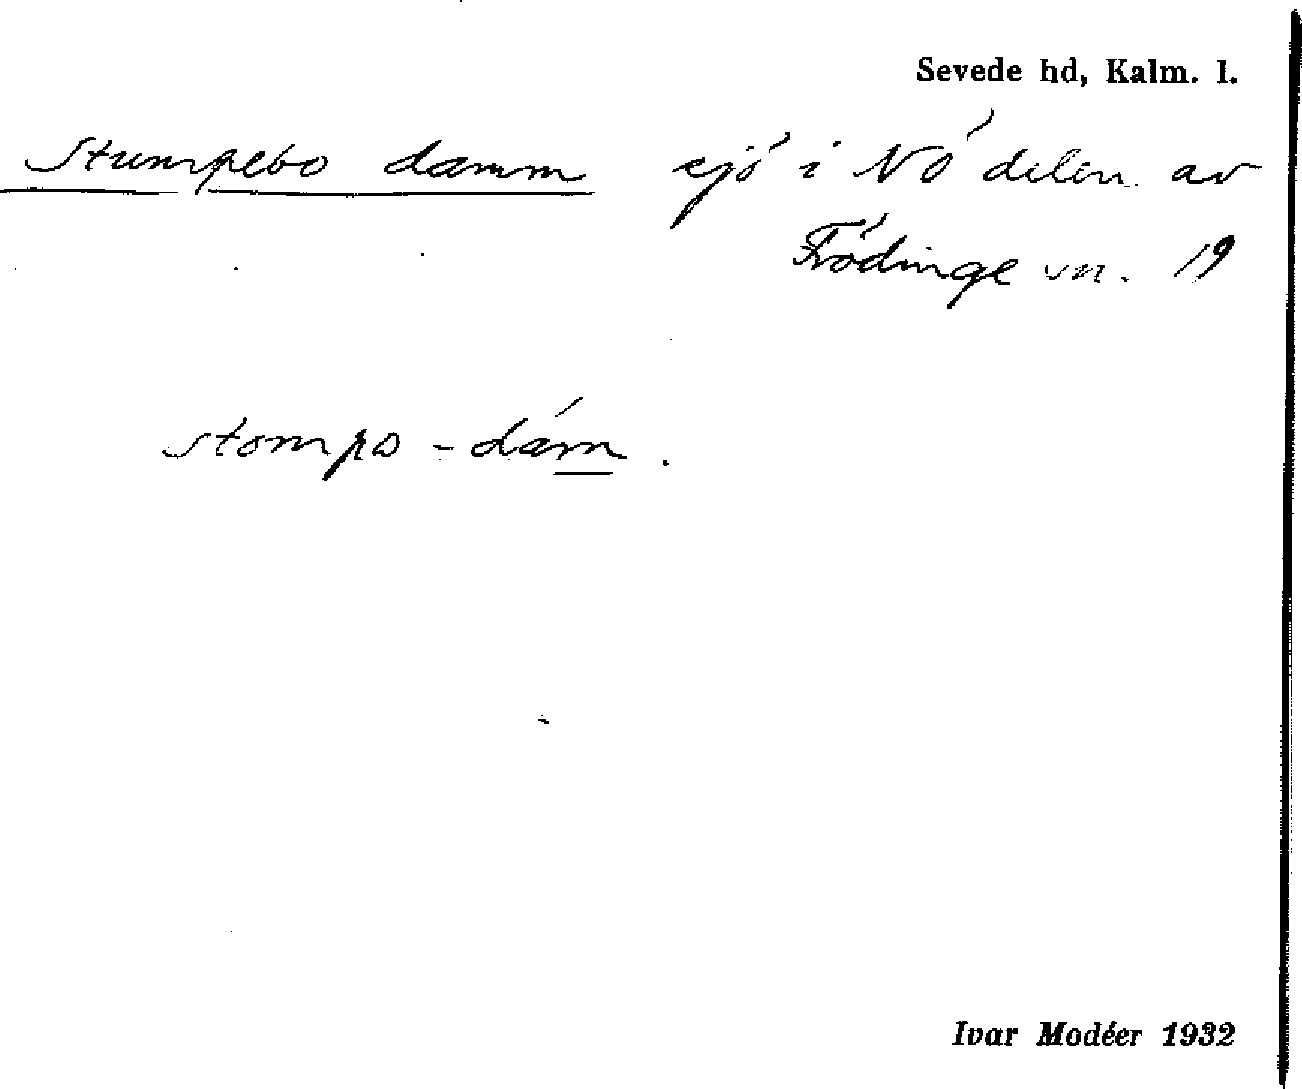 Sevede hd, Kalm. l.
Stumpebo damm sjö i NÖ delen av
Frödinge sn. 19
stompo - dám.
Ivar Modéer 1932